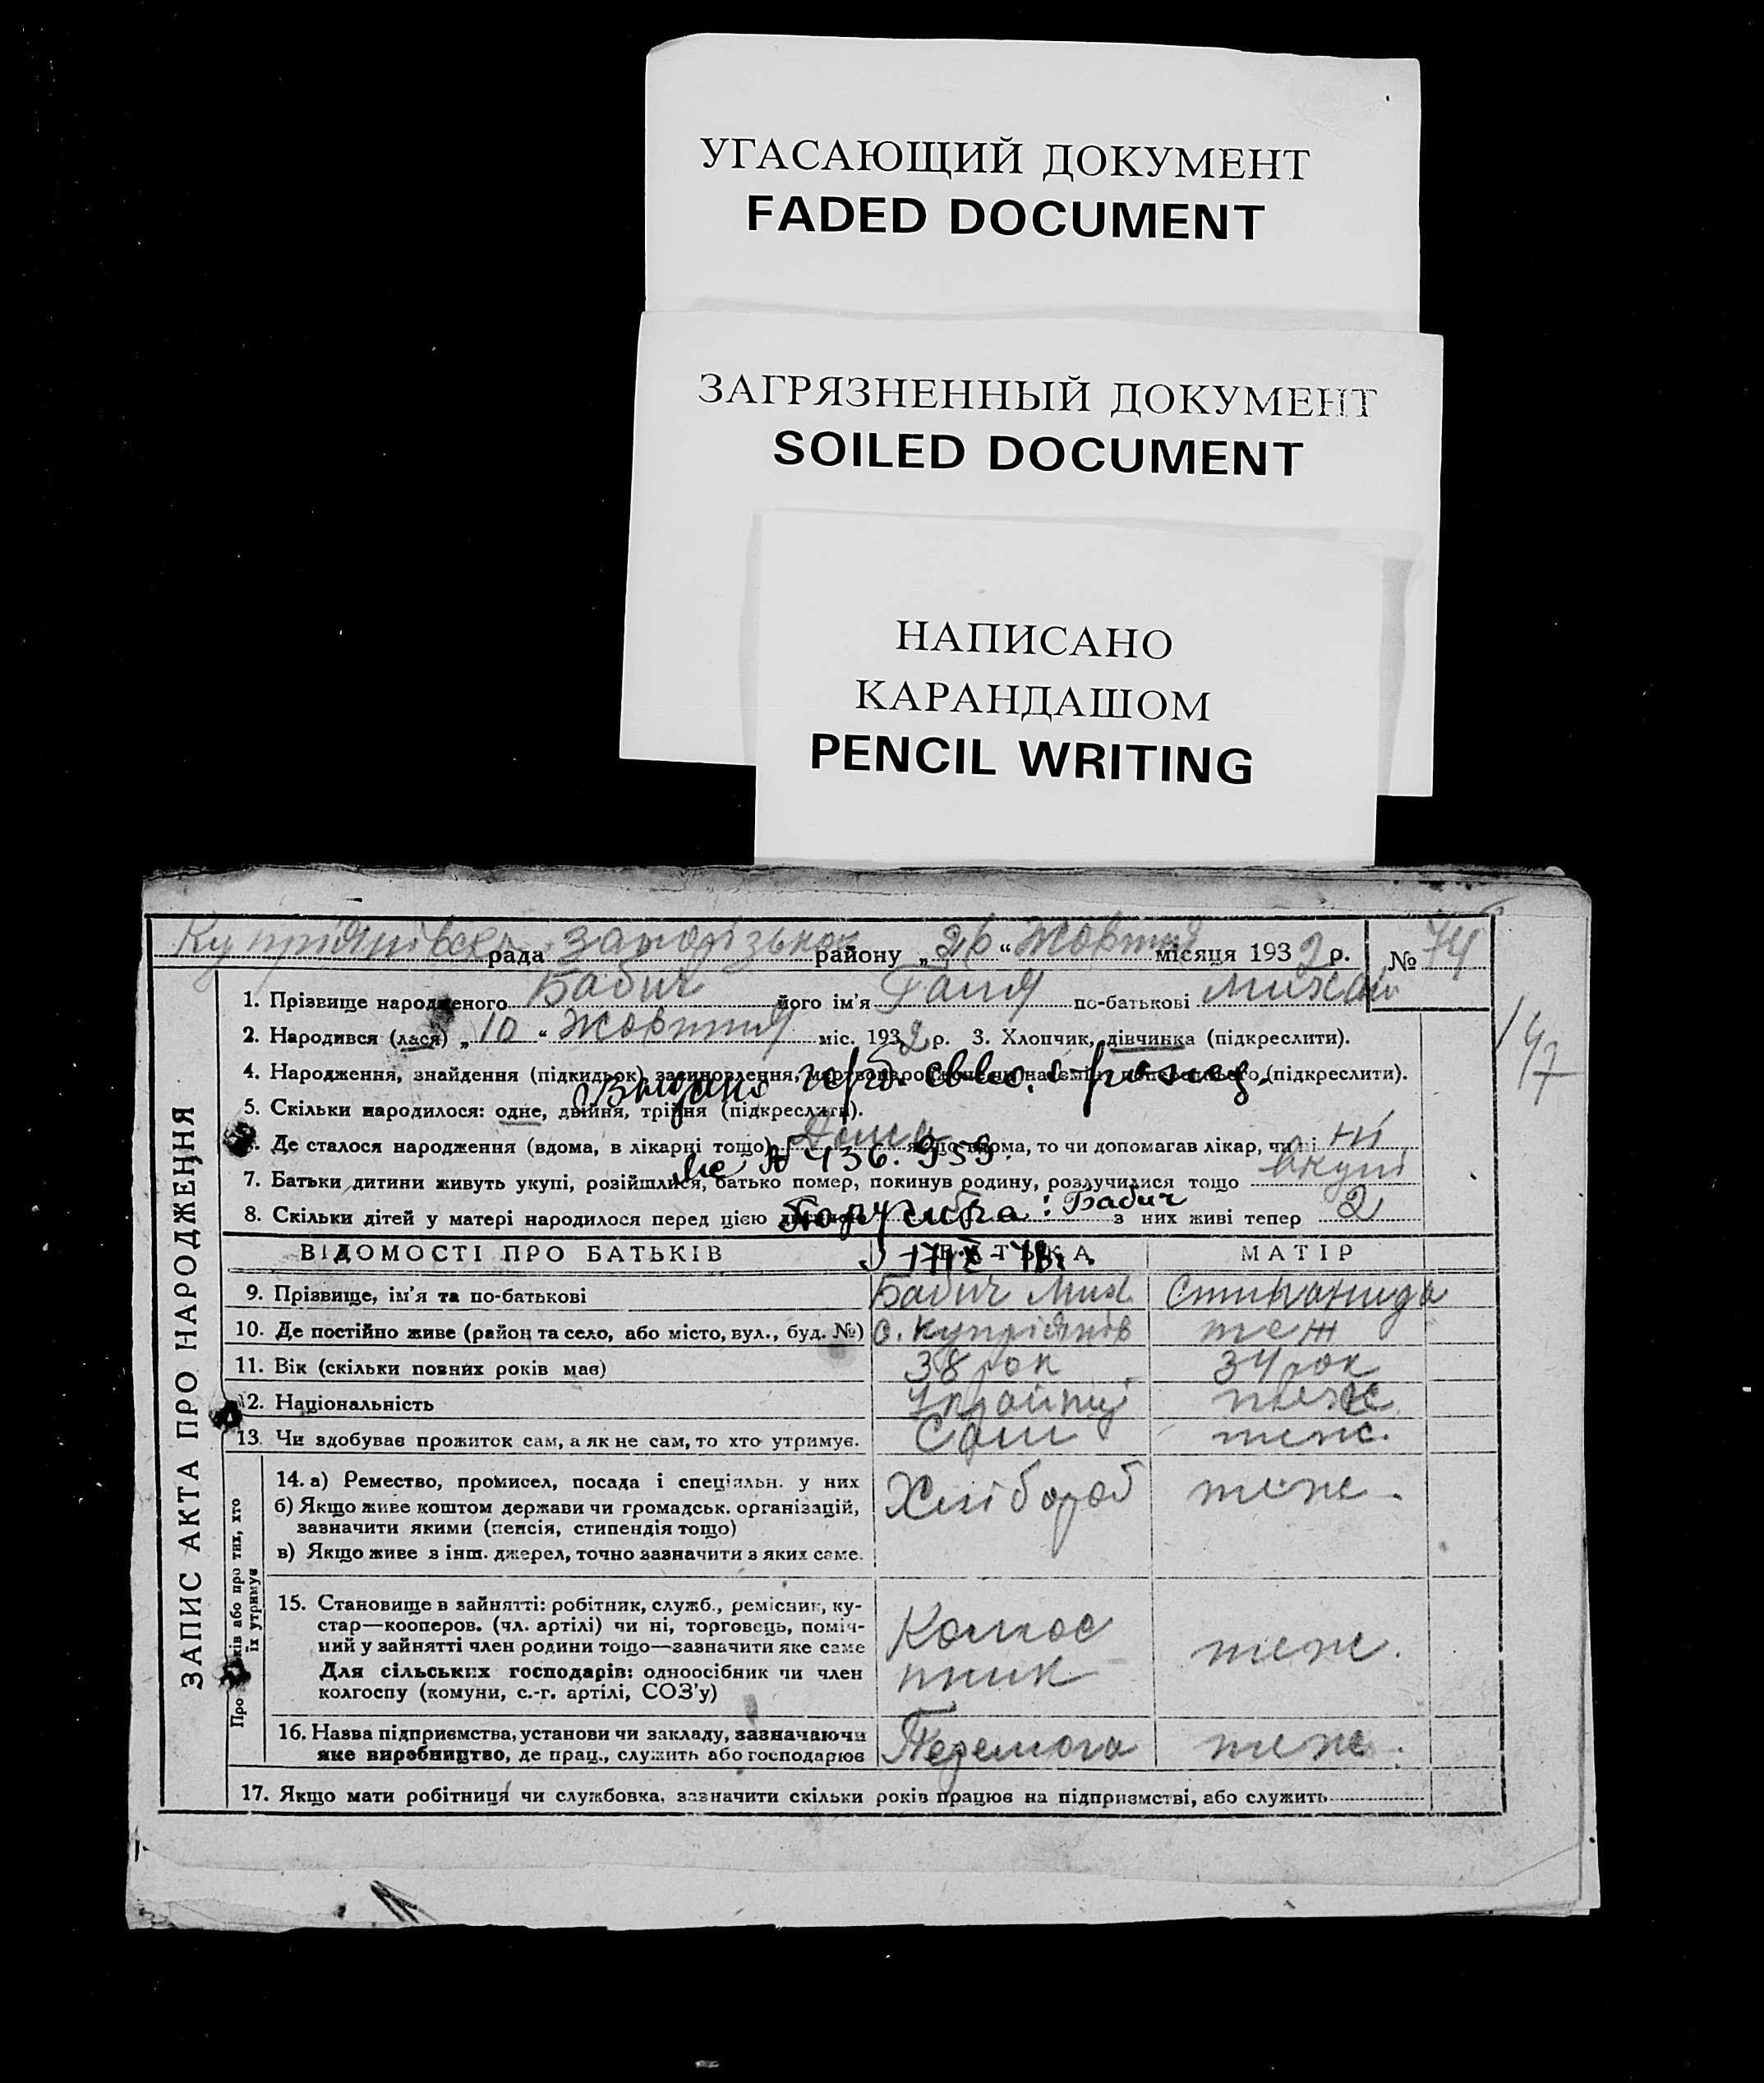 УГАСАЮЩИЙ ДОКУМЕНТ
FADED DOCUMENT
ЗАГРЯЗНЕННЫЙ ДОКУМЕНТ
SOILED DOCUMENT
НАПИСАНО
КАРАНДАШОМ
PENCIL WRITING
рада району „26“ Жовтня місяця 1932 р. № 74
147
ЗАПИС АКТА ПРО НАРОДЖЕННЯ
1. Прізвище народженого Бабич його ім'я Галя по-батькові Михай
2. Народився (лася) „10“ Жовтня міс. 1932 р. 3. Хлопчик, дівчинка (підкреслити).
4. Народження, знайдення (підкидьок), (підкреслити).
Выдано
5. Скільки народилося: одне, двійня, трійня (підкреслити).
6. Де сталося народження (вдома, в лікарні тощо) Дома якщо вдома, то чи допомагав лікар, чи ні ні
№ 436.959.
7. Батьки дитини живуть укупі, розійшлися, батько помер, покинув родину, розлучилися тощо вкупі
8. Скільки дітей у матері народилося перед цією з них живі тепер 2
: Бабич
ВІДОМОСТІ ПРО БАТЬКІВ БАТЬКА МАТІР
9. Прізвище, ім'я та по-батькові Бабич Мих
10. Де постійно живе (район та село, або місто, вул., буд. №) с. Купріянів теж
11. Вік (скільки повних років має) 38 рок 34 рок
12. Національність теж
13. Чи здобуває прожиток сам, а як не сам, то хто утримує. Сам теж.
Про батьків або про тих, хто їх утримує
14. а) Ремество, промисел, посада і спеціяльн. у них
б) Якщо живе коштом держави чи громадськ. організацій,
зазначити якими (пенсія, стипендія тощо)
в) Якщо живе з інш. джерел, точно зазначити з яких саме.
Хлібороб теж.
15. Становище в зайнятті: робітник, служб., ремісник, ку-
стар—кооперов. (чл. артілі) чи ні, торговець, поміч-
ний у зайнятті член родини тощо—зазначити яке саме
Для сільських господарів: одноосібник чи член
колгоспу (комуни, с.-г. артілі, СОЗ'у)
теж.
16. Назва підприємства, установи чи закладу, зазначаючи
яке виробництво, де прац., служить або господарює
Перемога теж.
17. Якщо мати робітниця чи службовка, зазначити скільки років працює на підприємстві, або служить